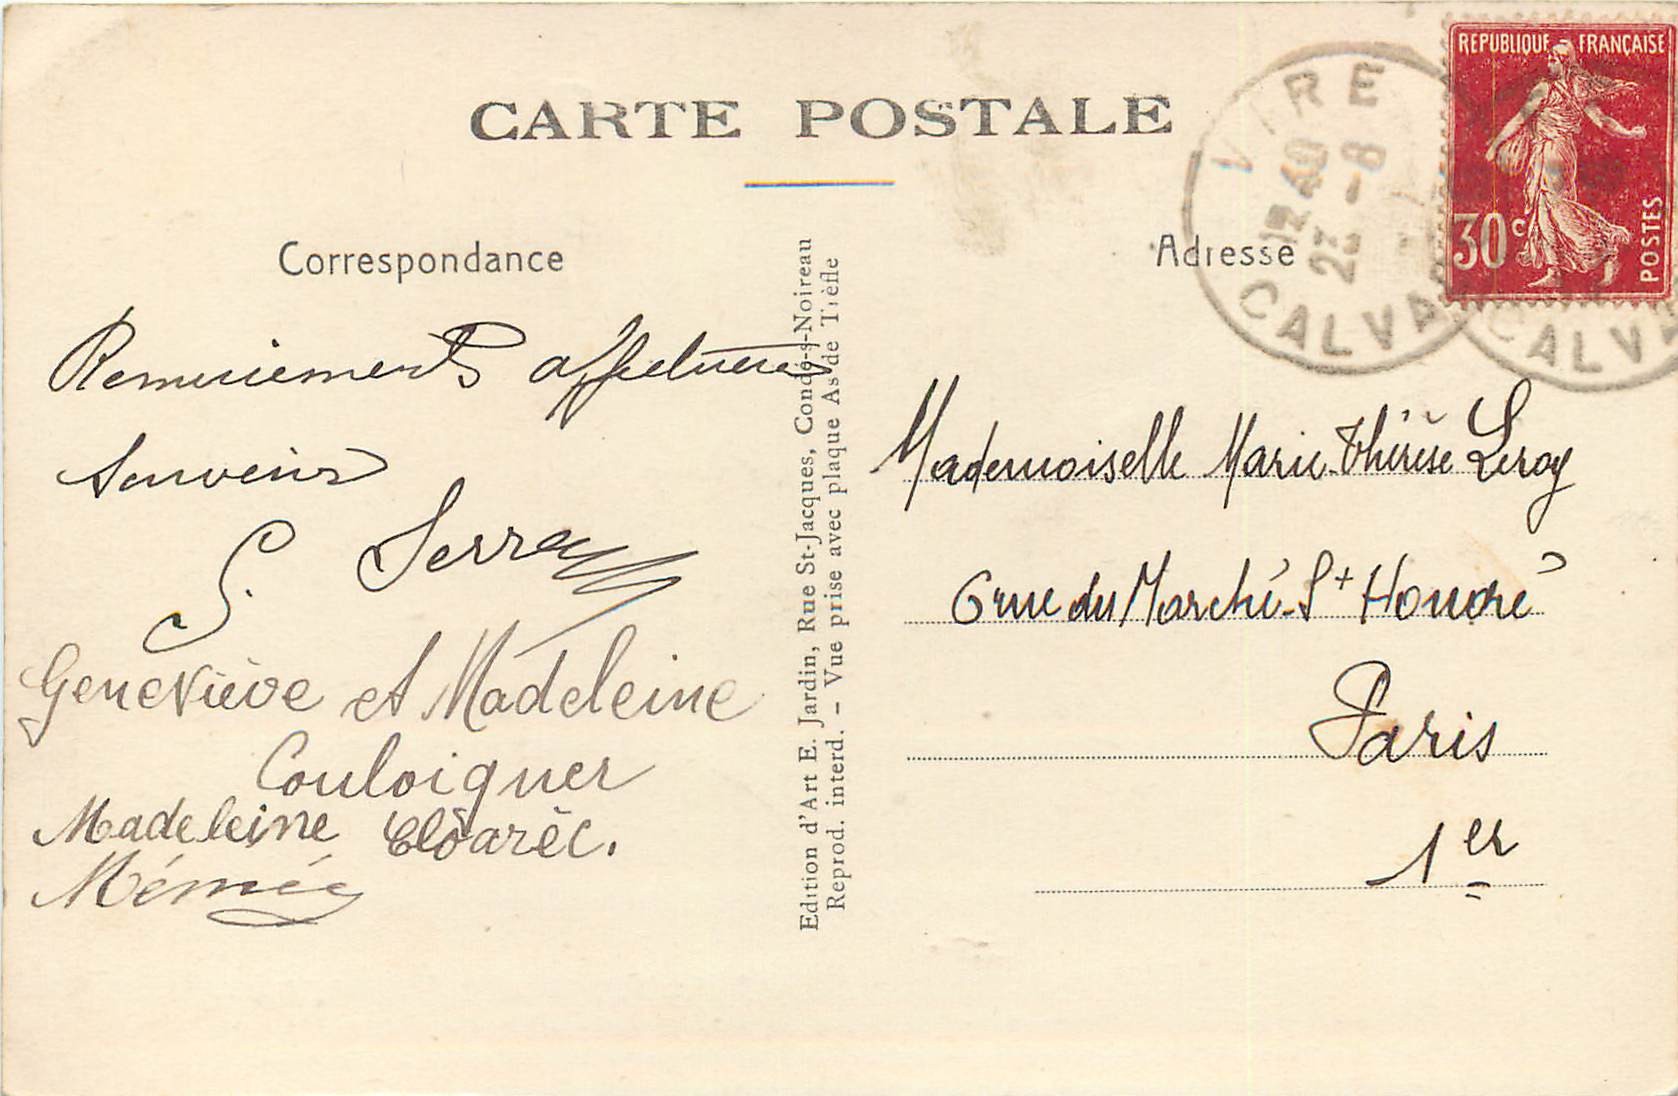 CARTE POSTALE
Correspondance
Remerciements affectueux
Souvenirs
S. Serray
Geneviève et Madeleine
Couloigner
Madeleine Cloarèc.
Mémée
Edition d'Art E. Jardin, Rue St-Jacques, Condé-s-Noireau
Reprod. interd. - Vue prise avec plaque As de Trèfle
REPUBLIQUE FRANÇAISE
30c
POSTES
VIRE
23 -8
CALVA
CALVA
Adresse
Mademoiselle Marie-Thérèse Leroy
6 rue du Marché-St Honoré
Paris
1er